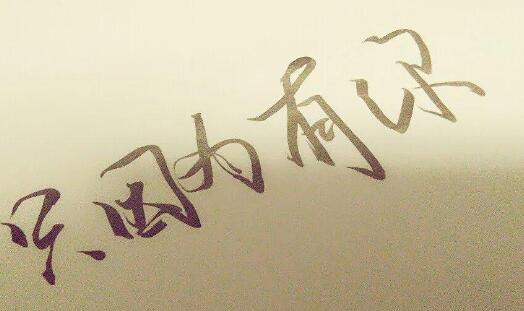 只因为有